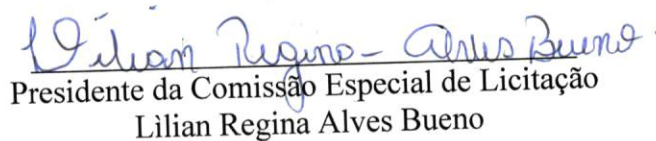 Lilian Regina Alves Bueno
Presidente da Comissão Especial de Licitação
Lìlian Regina Alves Bueno